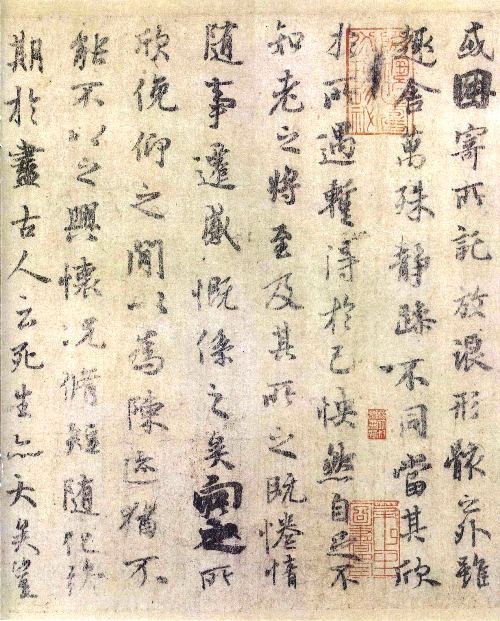 或因寄所託放浪形骸之外雖
趣舍萬殊靜躁不同當其欣
於所遇蹔得於己怏然自足不
知老之將至及其所之既惓情
隨事遷感慨係之矣向之所
欣俛仰之閒以為陳迹猶不
能不以之興懷況脩短隨化終
期於盡古人云死生亦大矣豈